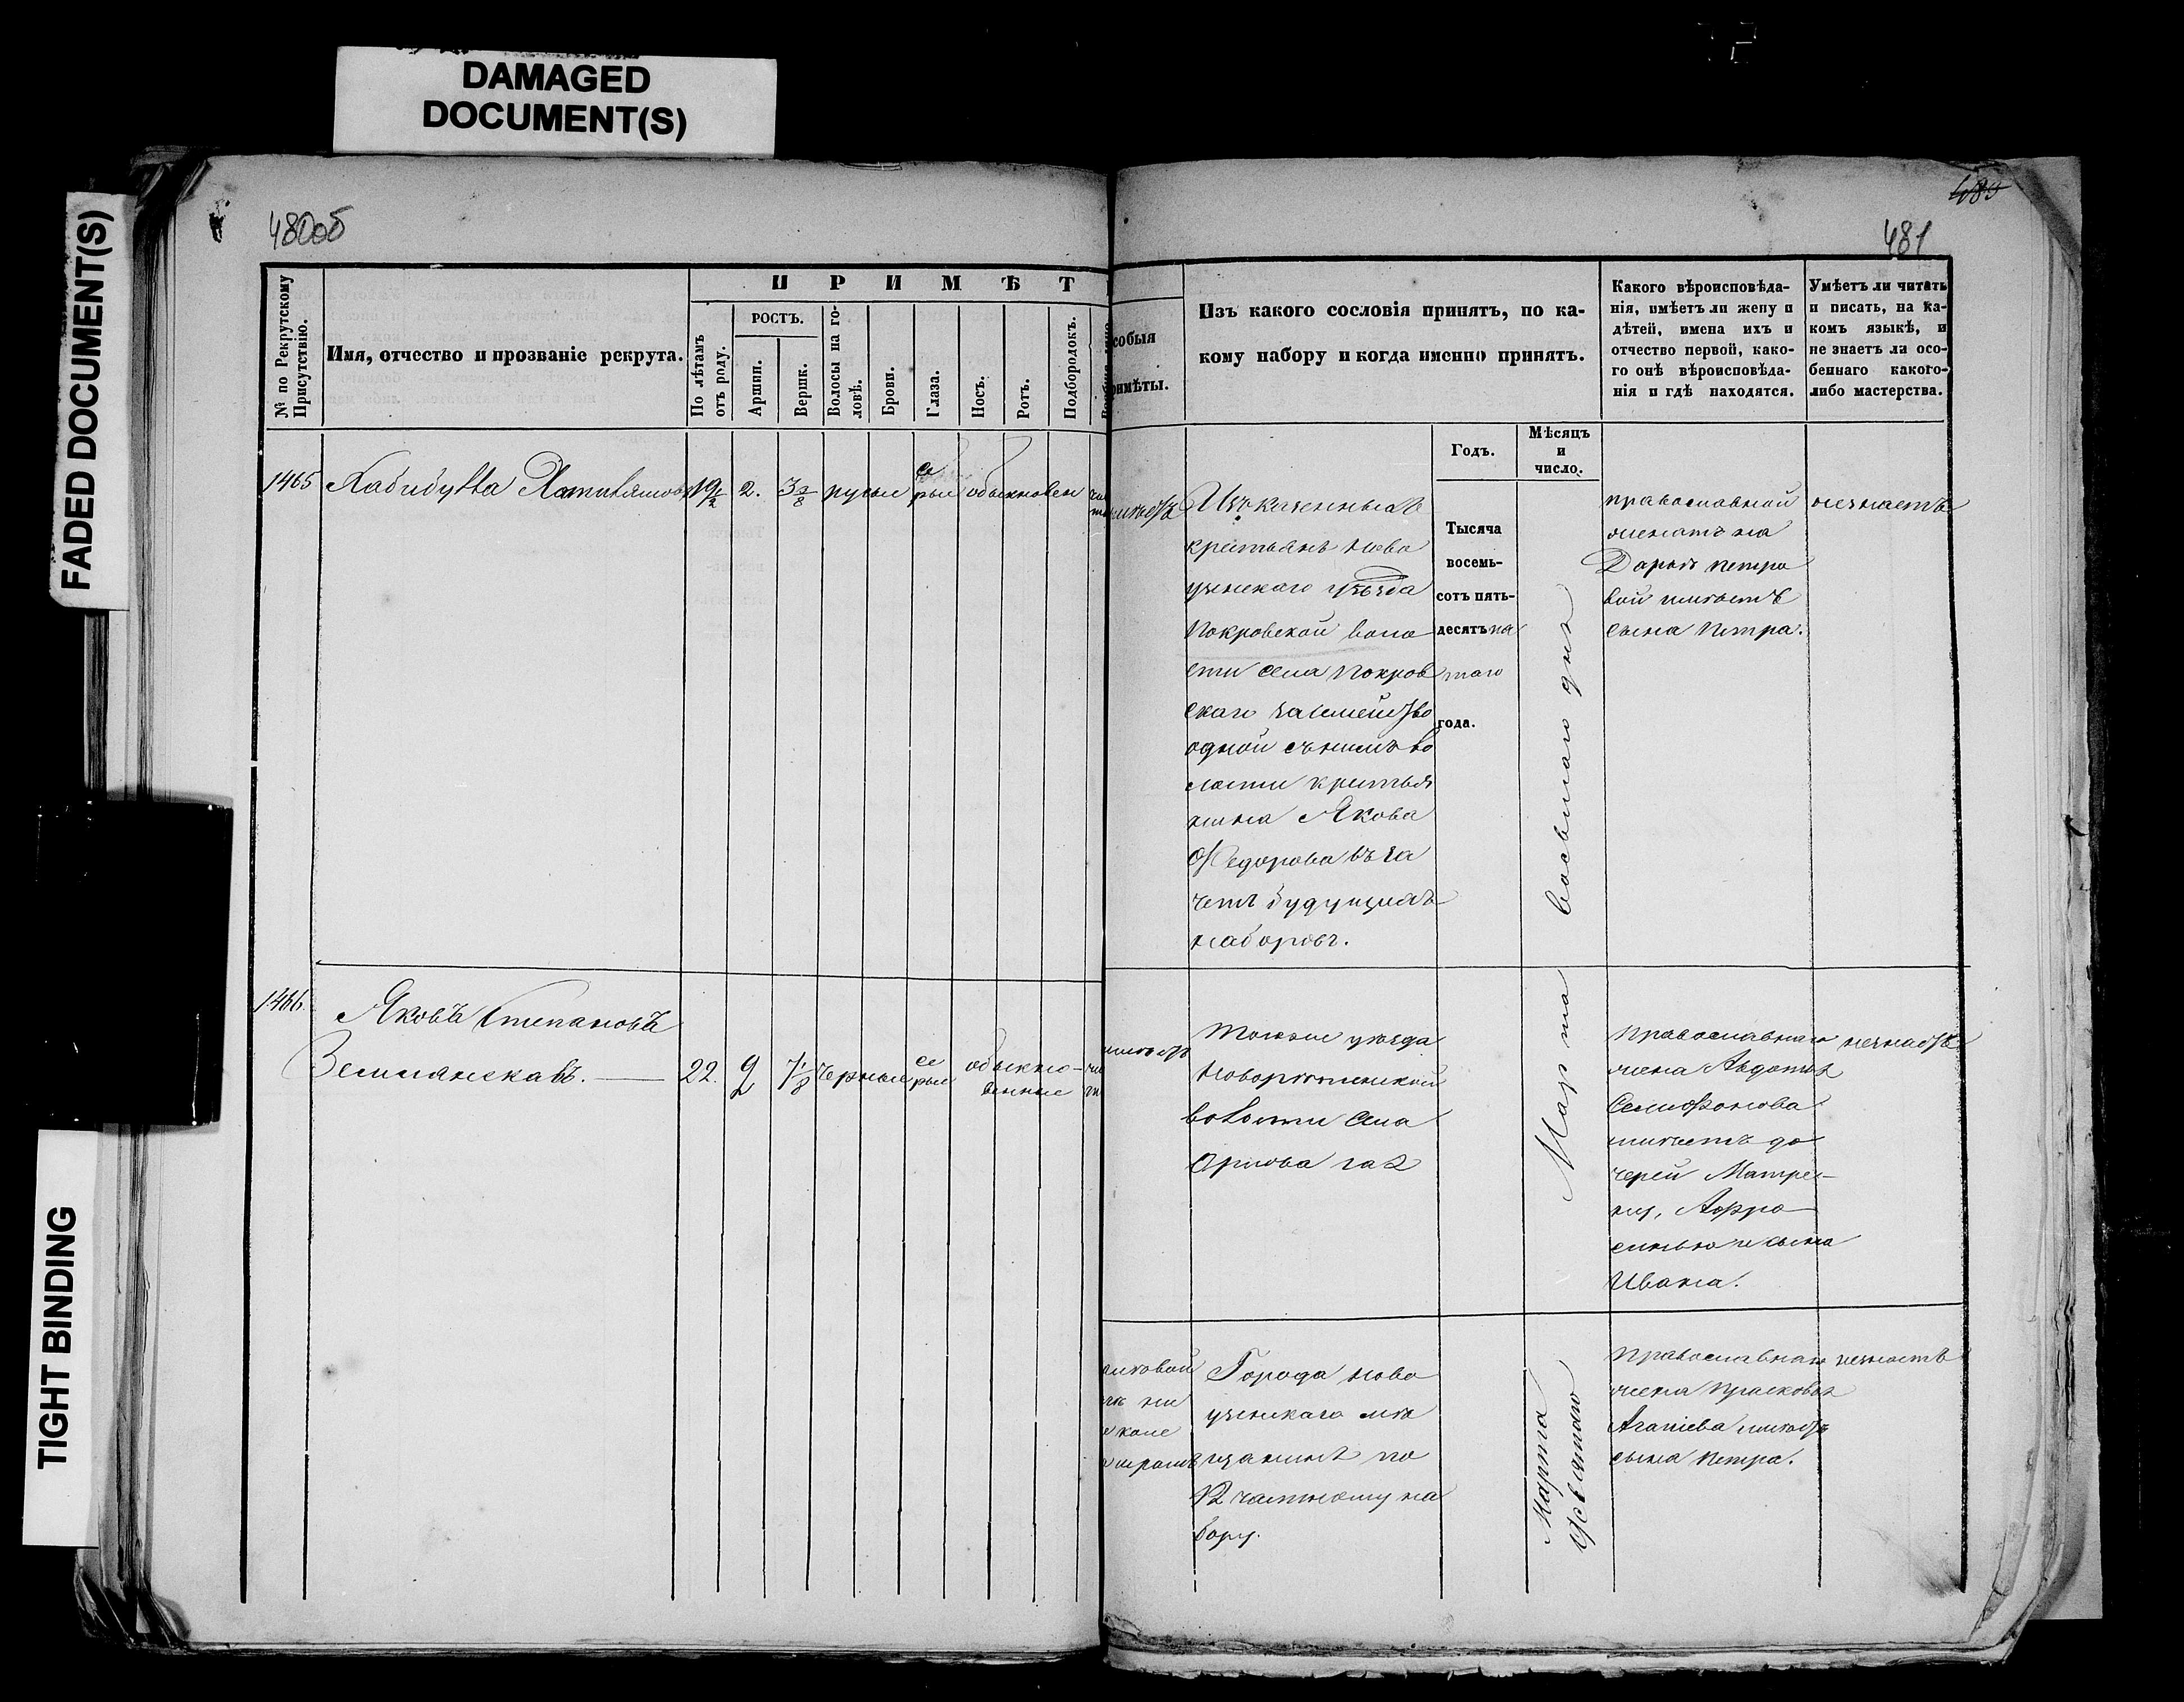 DAMAGED
DOCUMENT(S)
FADED DOCUMENT(S)
TIGHT BINDING
480об
№ по Рекрутскому
Присутствію.
Имя, отчество и прозваніе рекрута.
П Р И М Ѣ Т
По лѣтамъ
отъ роду.
РОСТЪ.
Аршин.
Вершк.
Волосы на го-
ловѣ.
Брови.
Глаза.
Носъ.
Ротъ.
Подбородокъ.
1465 Хабибулла 19½ 2. 3 2/8 русые се
рые обыкновен
1466.
Яковъ Степановъ
Землянскавъ. 22. 2 7 1/8 черные се
рые обыкно-
венные
489
481
собыя
римѣты.
Изъ какого сословія принятъ, по ка-
кому набору и когда именно принятъ.
Какого вѣроисповѣда-
нія, имѣетъ ли жену и
дѣтей, имена ихъ и
отчество первой, како-
го онѣ вѣроисповѣда-
нія и гдѣ находятся.
Умѣетъ ли читать
и писать, на ка-
комъ языкѣ, и
не знаетъ ли осо-
беннаго какого-
либо мастерства.
Годъ.
Мѣсяцъ
и
число.
Изъ казенныхъ
крестьянъ Ново
узенскаго уѣзда
Покровской воло
сти села Покров
скаго за семейство
одной съ нимъ во
лости крестья
нина Якова
Федорова въ за
четъ будущихъ
наборовъ.
Тысяча
восемь-
сотъ пять-
десять пя
таго
года.
Марта
восьмаго дня
православной
женатъ на
Дарьѣ Петро
вой имѣетъ
сына Петра.
незнаетъ
Тогоже уѣзда
волости села
Орлова Гая
Православнаго
жена Авдотья
имѣетъ до
черей Матре-
ну, Афро
синью и сына
Ивана.
незнаетъ
Города Ново
узенскаго мѣ
щанинъ по
12 частному на
бору.
Марта
девятаго
Православнаго
жена Прасковья
имѣетъ
сына Петра.
незнаетъ